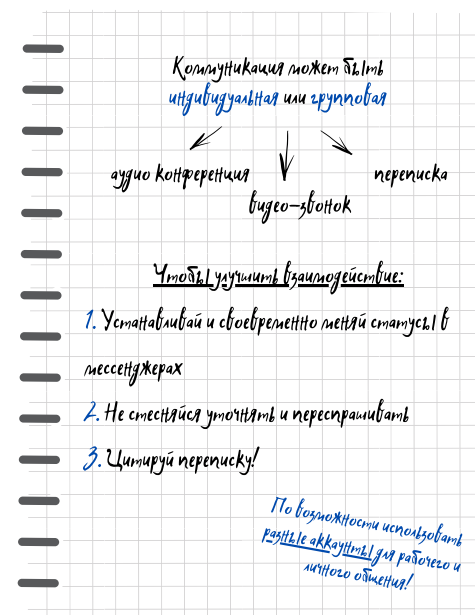 Коммуникация может быть
индивидуальная или групповая
аудио конференция
переписка
видео-звонок
Чтобы улучшить взаимодействие:
1. Устанавливай и своевременно меняй статусы в
мессенджерах
2. Не стесняйся уточнять и переспрашивать
3. Цитируй переписку!
По возможности использовать
разные аккаунты для рабочего и
личного общения!